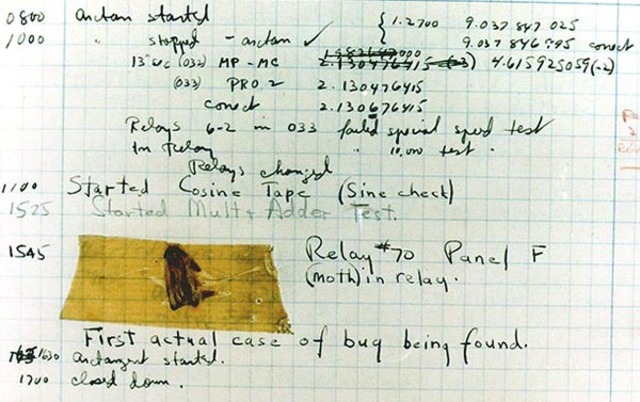 0800 antan started { 1.2700 9.037 847 025
1000 " stopped - antan ✓ 9.037 846 995 conect
13"uc (032) MP - MC 2.130476415 (-3) 4.615925059(-2)
(033) PRO 2 2.130476415
conect 2.130676415
Relays 6-2 in 033 failed special speed test
In Relay " 10.000 test.
Relays changed
1100 Started Cosine Tape (Sine check)
1525 Started Mult + Adder Test.
1545 Relay #70 Panel F
(moth) in relay.
First actual case of bug being found.
1630 antangent started.
1700 closed down.